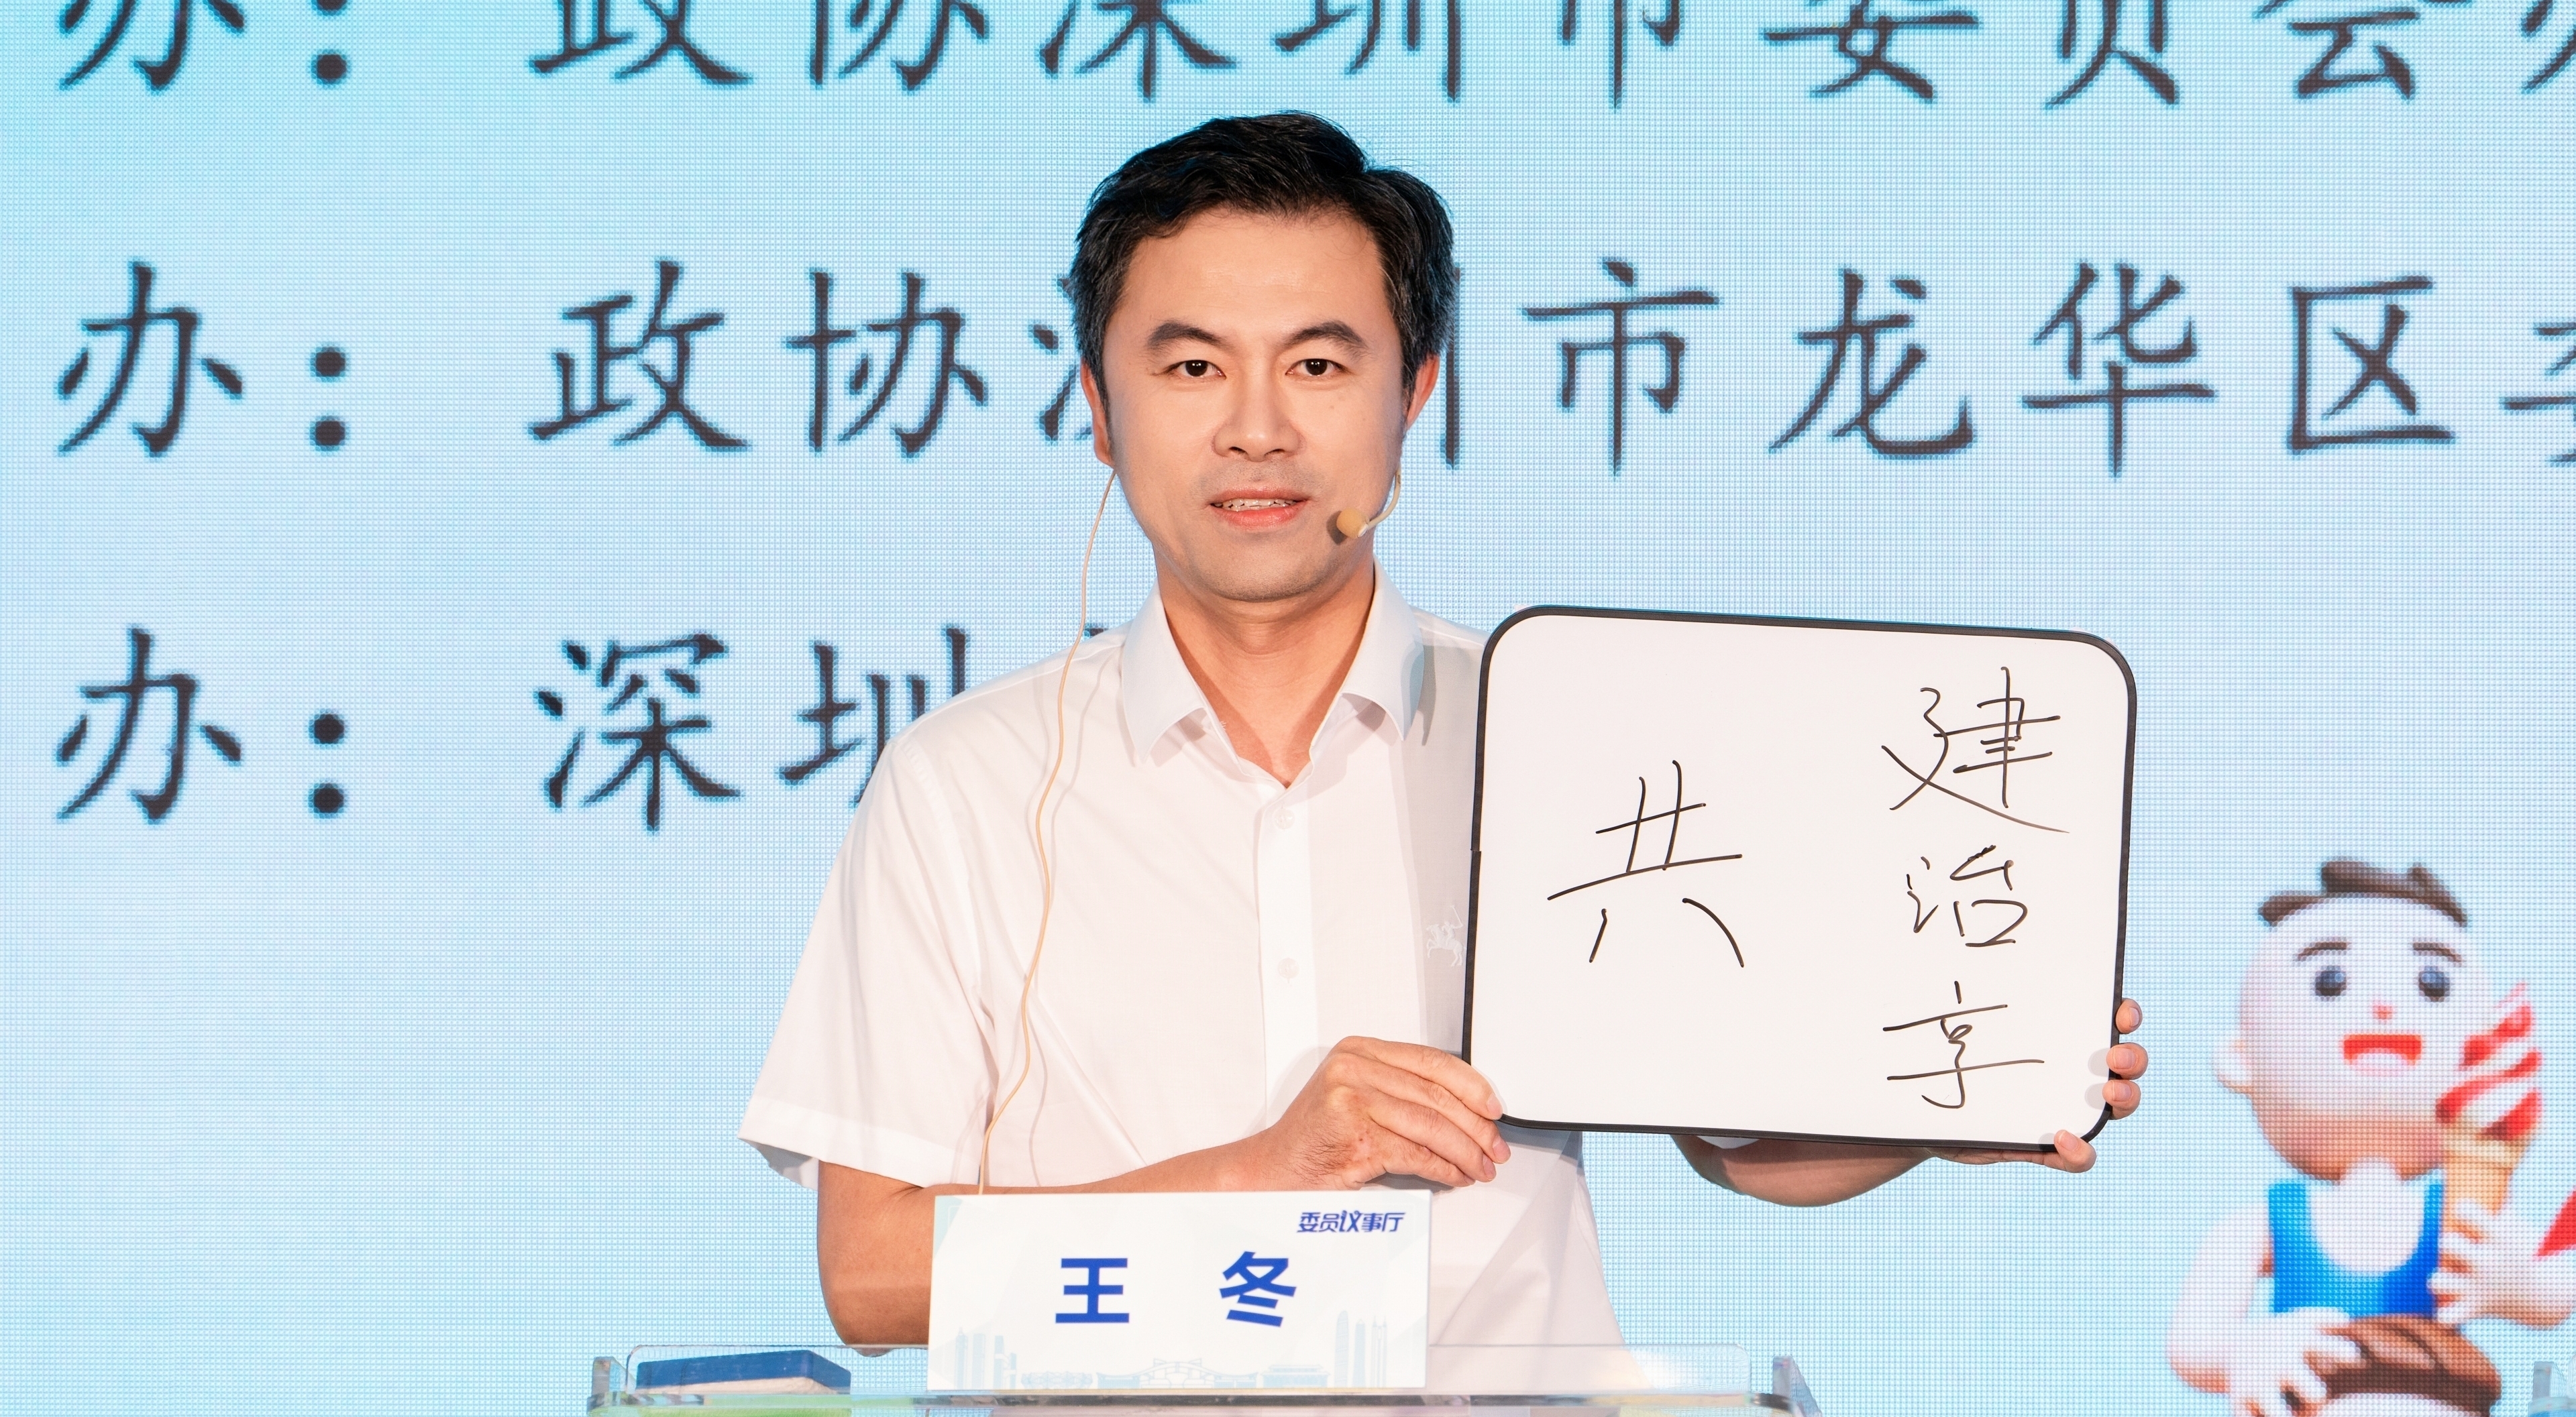 办：政协深圳市委员会办
办：政协深圳市龙华区委
办：深圳
共
建
治
享
委员议事厅
王 冬